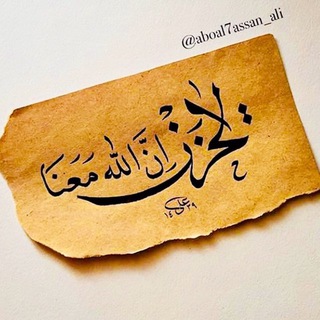 @aboal7assan_ali
لا تحزن إِنَّ الله مَعَنَا
علي
١٤٣٩